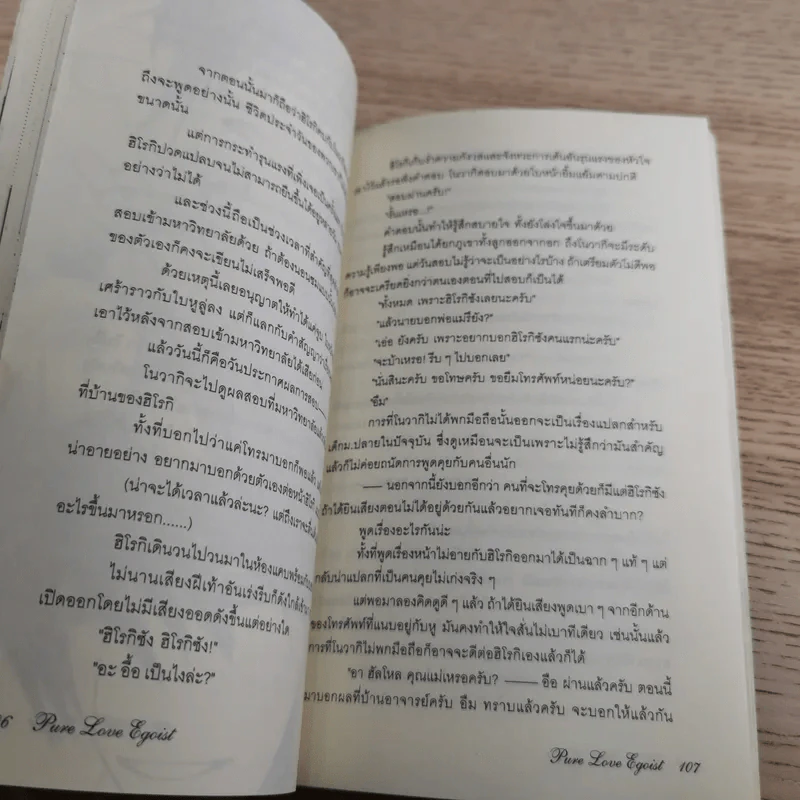 จากตอนนั้นมาก็ถือว่าฮิโรกิ
ถึงจะพูดอย่างนั้น ชีวิตประจำวันของพวก
ขนาดนั้น
แต่การกระทำรุนแรงที่เพิ่งเจอะเป็น
ฮิโรกิปวดแปลบจนไม่สามารถยืนขึ้นได้อยู่
อย่างว่าไม่ได้
และช่วงนี้ถือเป็นช่วงเวลาที่สำคัญ
สอบเข้ามหาวิทยาลัยด้วย ถ้าต้องนอนซม
ของตัวเองก็คงจะเขียนไม่เสร็จพอดี
ด้วยเหตุนี้เลยอนุญาตให้ทำได้แค่จูบ
เศร้าราวกับใบหูลู่ลง แต่ก็แลกกับคำสัญญาว่า
เอาไว้หลังจากสอบเข้ามหาวิทยาลัยได้เสียก่อน
แล้ววันนี้ก็คือวันประกาศผลการสอบ——
โนวากิจะไปดูผลสอบที่มหาวิทยาลัย
ที่บ้านของฮิโรกิ
ทั้งที่บอกไปว่าแค่โทรมาบอกก็พอแล้ว
น่าอายอย่าง อยากมาบอกด้วยตัวเองต่อหน้าฮิโรกิ
(น่าจะได้เวลาแล้วล่ะนะ? แต่ถึงเราจะตื่น
อะไรขึ้นมาหรอก......)
ฮิโรกิเดินวนไปวนมาในห้องแคบพร้อมกับ
ไม่นานเสียงฝีเท้าอันเร่งรีบก็ดังใกล้เข้ามา
เปิดออกโดยไม่มีเสียงออดดังขึ้นแต่อย่างใด
"ฮิโรกิซัง ฮิโรกิซัง!"
"อะ อื้อ เป็นไงล่ะ?"
6 Pure Love Egoist
ฮิโรกิกับรำความกังวลและจังหวะการเต้นอันรุนแรงของหัวใจ
โนวากิตอบมาด้วยใบหน้ายิ้มแย้มตามปกติ
"สอบผ่านครับ!"
"งั้นเหรอ...!"
คำตอบนั้นทำให้รู้สึกสบายใจ ทั้งยังโล่งใจขึ้นมาด้วย
รู้สึกเหมือนได้ยกภูเขาทั้งลูกออกจากอก ถึงโนวากิจะมีระดับ
ความรู้เพียงพอ แต่วันสอบไม่รู้ว่าจะเป็นอย่างไรบ้าง ถ้าเตรียมตัวไม่ดีพอ
ก็อาจจะเครียดยิ่งกว่าตนเองตอนที่ไปสอบก็เป็นได้
"ทั้งหมด เพราะฮิโรกิซังเลยนะครับ"
"แล้วนายบอกพ่อแม่รึยัง?"
"เอ่อ ยังครับ เพราะอยากบอกฮิโรกิซังคนแรกน่ะครับ"
"จะบ้าเหรอ! รีบ ๆ ไปบอกเลย"
"นั่นสินะครับ ขอโทษครับ ขอยืมโทรศัพท์หน่อยนะครับ?"
"อืม"
การที่โนวากิไม่ได้พกมือถือนั้นออกจะเป็นเรื่องแปลกสำหรับ
เด็กม.ปลายในปัจจุบัน ซึ่งดูเหมือนจะเป็นเพราะไม่รู้สึกว่ามันสำคัญ
แล้วก็ไม่ค่อยถนัดการพูดคุยกับคนอื่นนัก
—— นอกจากนี้ยังบอกอีกว่า คนที่จะโทรคุยด้วยก็มีแต่ฮิโรกิซัง
ถ้าได้ยินเสียงตอนไม่ได้อยู่ด้วยกันแล้วอยากเจอทันทีก็คงลำบาก?
พูดเรื่องอะไรกันน่ะ
ทั้งที่พูดเรื่องหน้าไม่อายกับฮิโรกิออกมาได้เป็นฉาก ๆ แท้ ๆ แต่
กลับน่าแปลกที่เป็นคนคุยไม่เก่งจริง ๆ
แต่พอมาลองคิดดูดี ๆ แล้ว ถ้าได้ยินเสียงพูดเบา ๆ จากอีกด้าน
ของโทรศัพท์ที่แนบอยู่กับหู มันคงทำให้ใจสั่นไม่เบาทีเดียว เช่นนั้นแล้ว
การที่โนวากิไม่พกมือถือก็อาจจะดีต่อฮิโรกิเองแล้วก็ได้
"อา ฮัลโหล คุณแม่เหรอครับ? —— อือ ผ่านแล้วครับ ตอนนี้
มาบอกผลที่บ้านอาจารย์ครับ อืม ทราบแล้วครับ จะบอกให้แล้วกัน
Pure Love Egoist 107